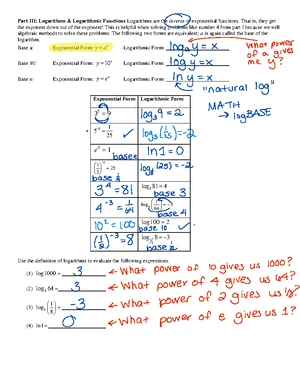 Part III: Logarithms & Logarithmic Functions Logarithms are the inverse of exponential functions. That is, they get
the exponent down out of the exponent! This is helpful when solving problems like number 4 from part I because we will
algebraic methods to solve these problems. The following two forms are equivalent; a is again called the base of the
logarithm.
Base a: Exponential Form: y = aˣ Logarithmic Form: logₐ y = x
What power of a gives me y?
Base 10: Exponential Form: y = 10ˣ Logarithmic Form: log y = x
Base e: Exponential Form: y = eˣ Logarithmic Form: ln y = x
"natural log"
MATH
→ logBASE
Exponential Form Logarithmic Form
3² = 9 log₃ 9 = 2
5⁻² = 1/25 log₅(1/25) = -2
e⁰ = 1 base e ln 1 = 0
(1/5)⁻² = 25 base 1/5 (25) = -2
3⁴ = 81 log₃ 81 = 4 base 3
4⁻³ = 1/64 log₄ 1/64 = -3 base 4
10² = 100 log 100 = 2 base 10
(1/2)⁻³ = 8 log₁/₂ 8 = -3 base 1/2
Use the definition of logarithms to evaluate the following expressions.
(1) log 1000 = 3 ← What power of 10 gives us 1000?
(2) log₄ 64 = 3 ← What power of 4 gives us 64?
(3) log₂(1/8) = -3 ← What power of 2 gives us 1/8?
(4) ln 1 = 0 ← What power of e gives us 1?